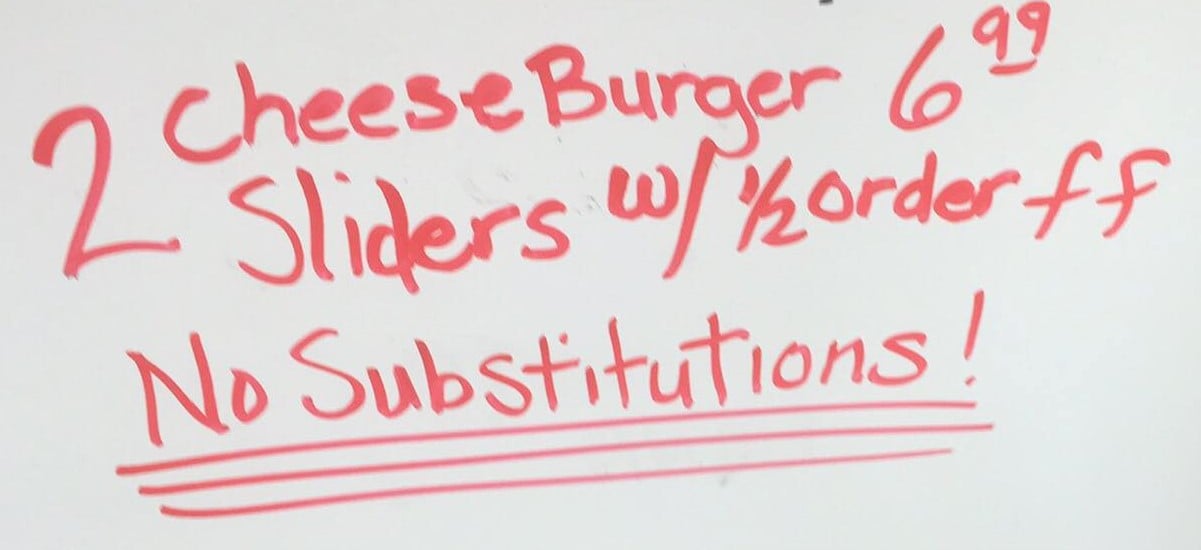 2 CheeseBurger 6 99
Sliders w/ ½ order ff
No Substitutions!